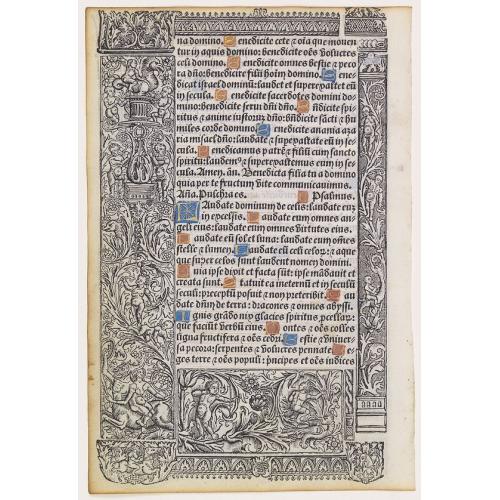 na domino. Benedicite cete ⁊ oīa que mouen
tur in aquis domino: benedicite oēs volucres
celi domino. Benedicite omnes bestie ⁊ peco
ra dño: benedicite filii hoīm domino. Bene
dicat israel dominū: laudet et superexaltet eū
in secula. Benedicite sacerdotes domini do
mino: benedicite serui dñi dño. Bñdicite spi
ritus ⁊ anime iustorū dño: bñdicite sācti ⁊ hu
miles corde domino. Benedicite anania aza
ria misael dño: laudate ⁊ superexaltate eū in se
cula. Benedicamus patrē ⁊ filiū cum sancto
spiritu: laudemꝰ ⁊ superexaltemus eum in se
cula. Amen. āñ. Benedicta filia tu a domino
quia per te fructum vite communicauimus.
Aña. Pulchra es. Psalmus.
Laudate dominum de celis: laudate eum
in excelsis. Laudate eum omnes an
geli eius: laudate eum omnes virtutes eius.
Laudate eū sol et luna: laudate eum om̄es
stelle ⁊ lumen. Laudate eū celi celorꝫ: ⁊ aque
que super celos sunt laudent nomen domini.
Quia ipse dixit et facta sūt: ipse mādauit et
creata sunt. Statuit ea in eternū et in seculū
seculi: preceptū posuit ⁊ non preteribit. Lau
date dñm de terra: dracones ⁊ omnes abyssi.
Ignis grādo nix glacies spiritus ꝓcellarꝫ:
que faciūt verbū eius. Montes ⁊ oēs colles
ligna fructifera ⁊ oēs cedri. Bestie ⁊ vniuer
sa pecora: serpentes ⁊ volucres pennate. Re
ges terre ⁊ oēs populi: pncipes et oēs iudices